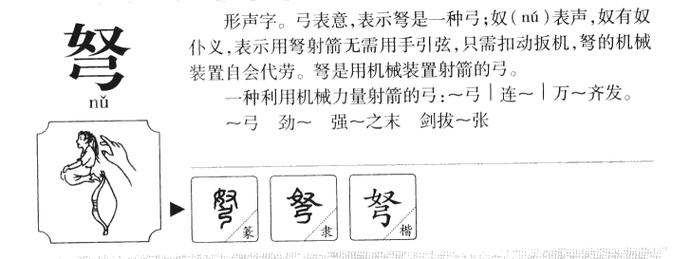 弩
nǔ
形声字。弓表意,表示弩是一种弓;奴(nú)表声,奴有奴
仆义,表示用弩射箭无需用手引弦,只需扣动扳机,弩的机械
装置自会代劳。弩是用机械装置射箭的弓。
一种利用机械力量射箭的弓:～弓|连～|万～齐发。
～弓 劲～ 强～之末 剑拔～张
弩 篆
弩 隶
弩 楷